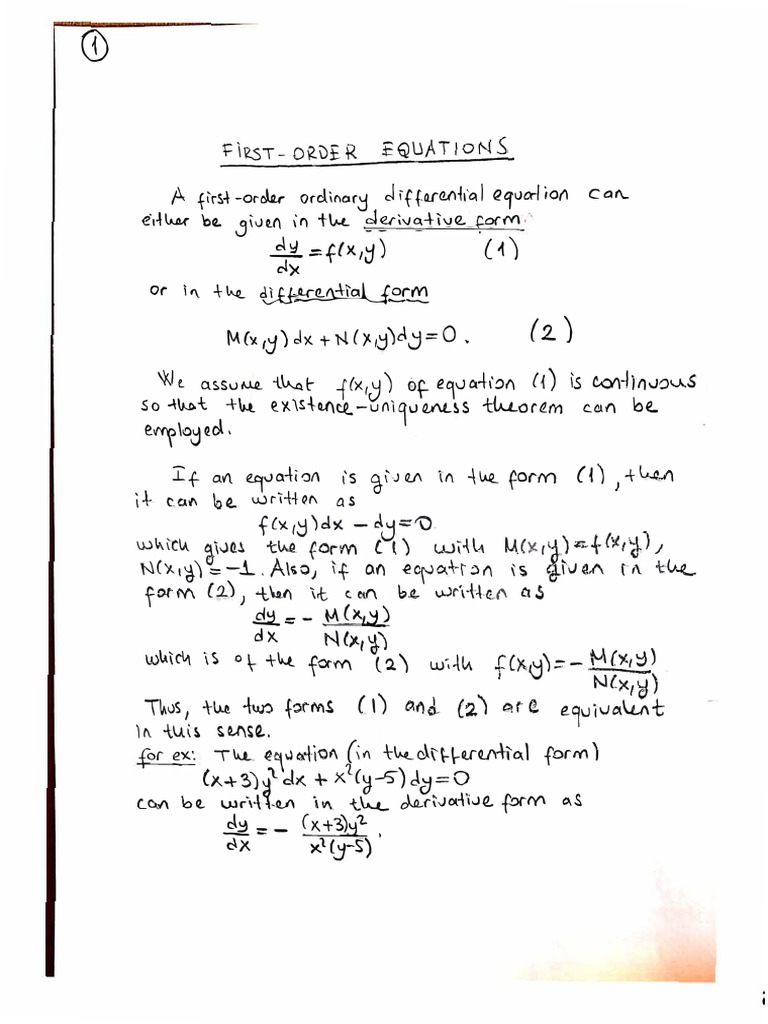 1
FIRST-ORDER EQUATIONS
A first-order ordinary differential equation can
either be given in the derivative form
dy/dx = f(x,y) (1)
or in the differential form
M(x,y)dx + N(x,y)dy = 0. (2)
We assume that f(x,y) of equation (1) is continuous
so that the existence-uniqueness theorem can be
employed.
If an equation is given in the form (1), then
it can be written as
f(x,y)dx - dy = 0
which gives the form (1) with M(x,y) = f(x,y),
N(x,y) = -1. Also, if an equation is given in the
form (2), then it can be written as
dy/dx = - M(x,y)/N(x,y)
which is of the form (2) with f(x,y) = - M(x,y)/N(x,y)
Thus, the two forms (1) and (2) are equivalent
in this sense.
for ex: The equation (in the differential form)
(x+3)y²dx + x²(y-5)dy = 0
can be written in the derivative form as
dy/dx = - (x+3)y²/x²(y-5).